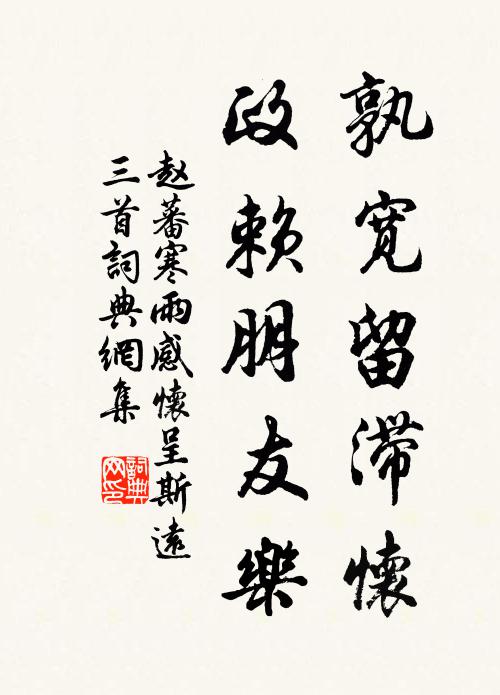 孰寬留滯懷
政賴朋友樂
赵蕃寒雨感懷呈斯遠
三首詞典網集
詞典
网印